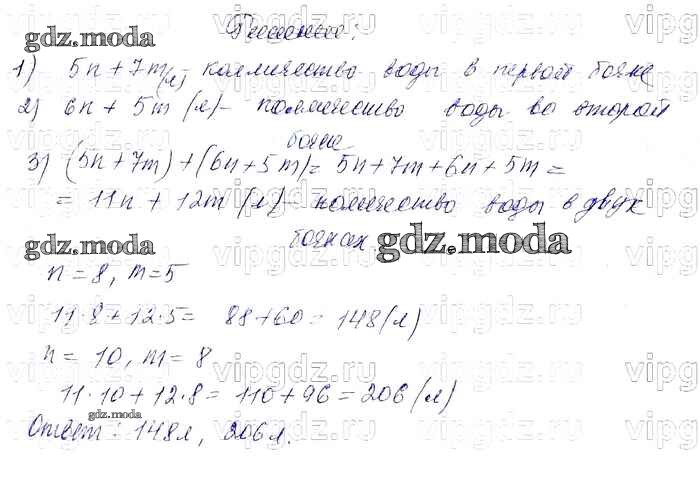 Решение:
1) 5n + 7m (л) – количество воды в первой бочке
2) 6n + 5m (л) – количество воды во второй
бочке
3) (5n + 7m) + (6n + 5m) = 5n + 7m + 6n + 5m =
= 11n + 12m (л) – количество воды в двух
бочках.
n = 8, m = 5
11·8 + 12·5 = 88 + 60 = 148 (л)
n = 10, m = 8
11·10 + 12·8 = 110 + 96 = 206 (л)
Ответ: 148 л, 206 л.
gdz.moda
gdz.moda
gdz.moda
gdz.moda
gdz.moda
vipgdz.ru